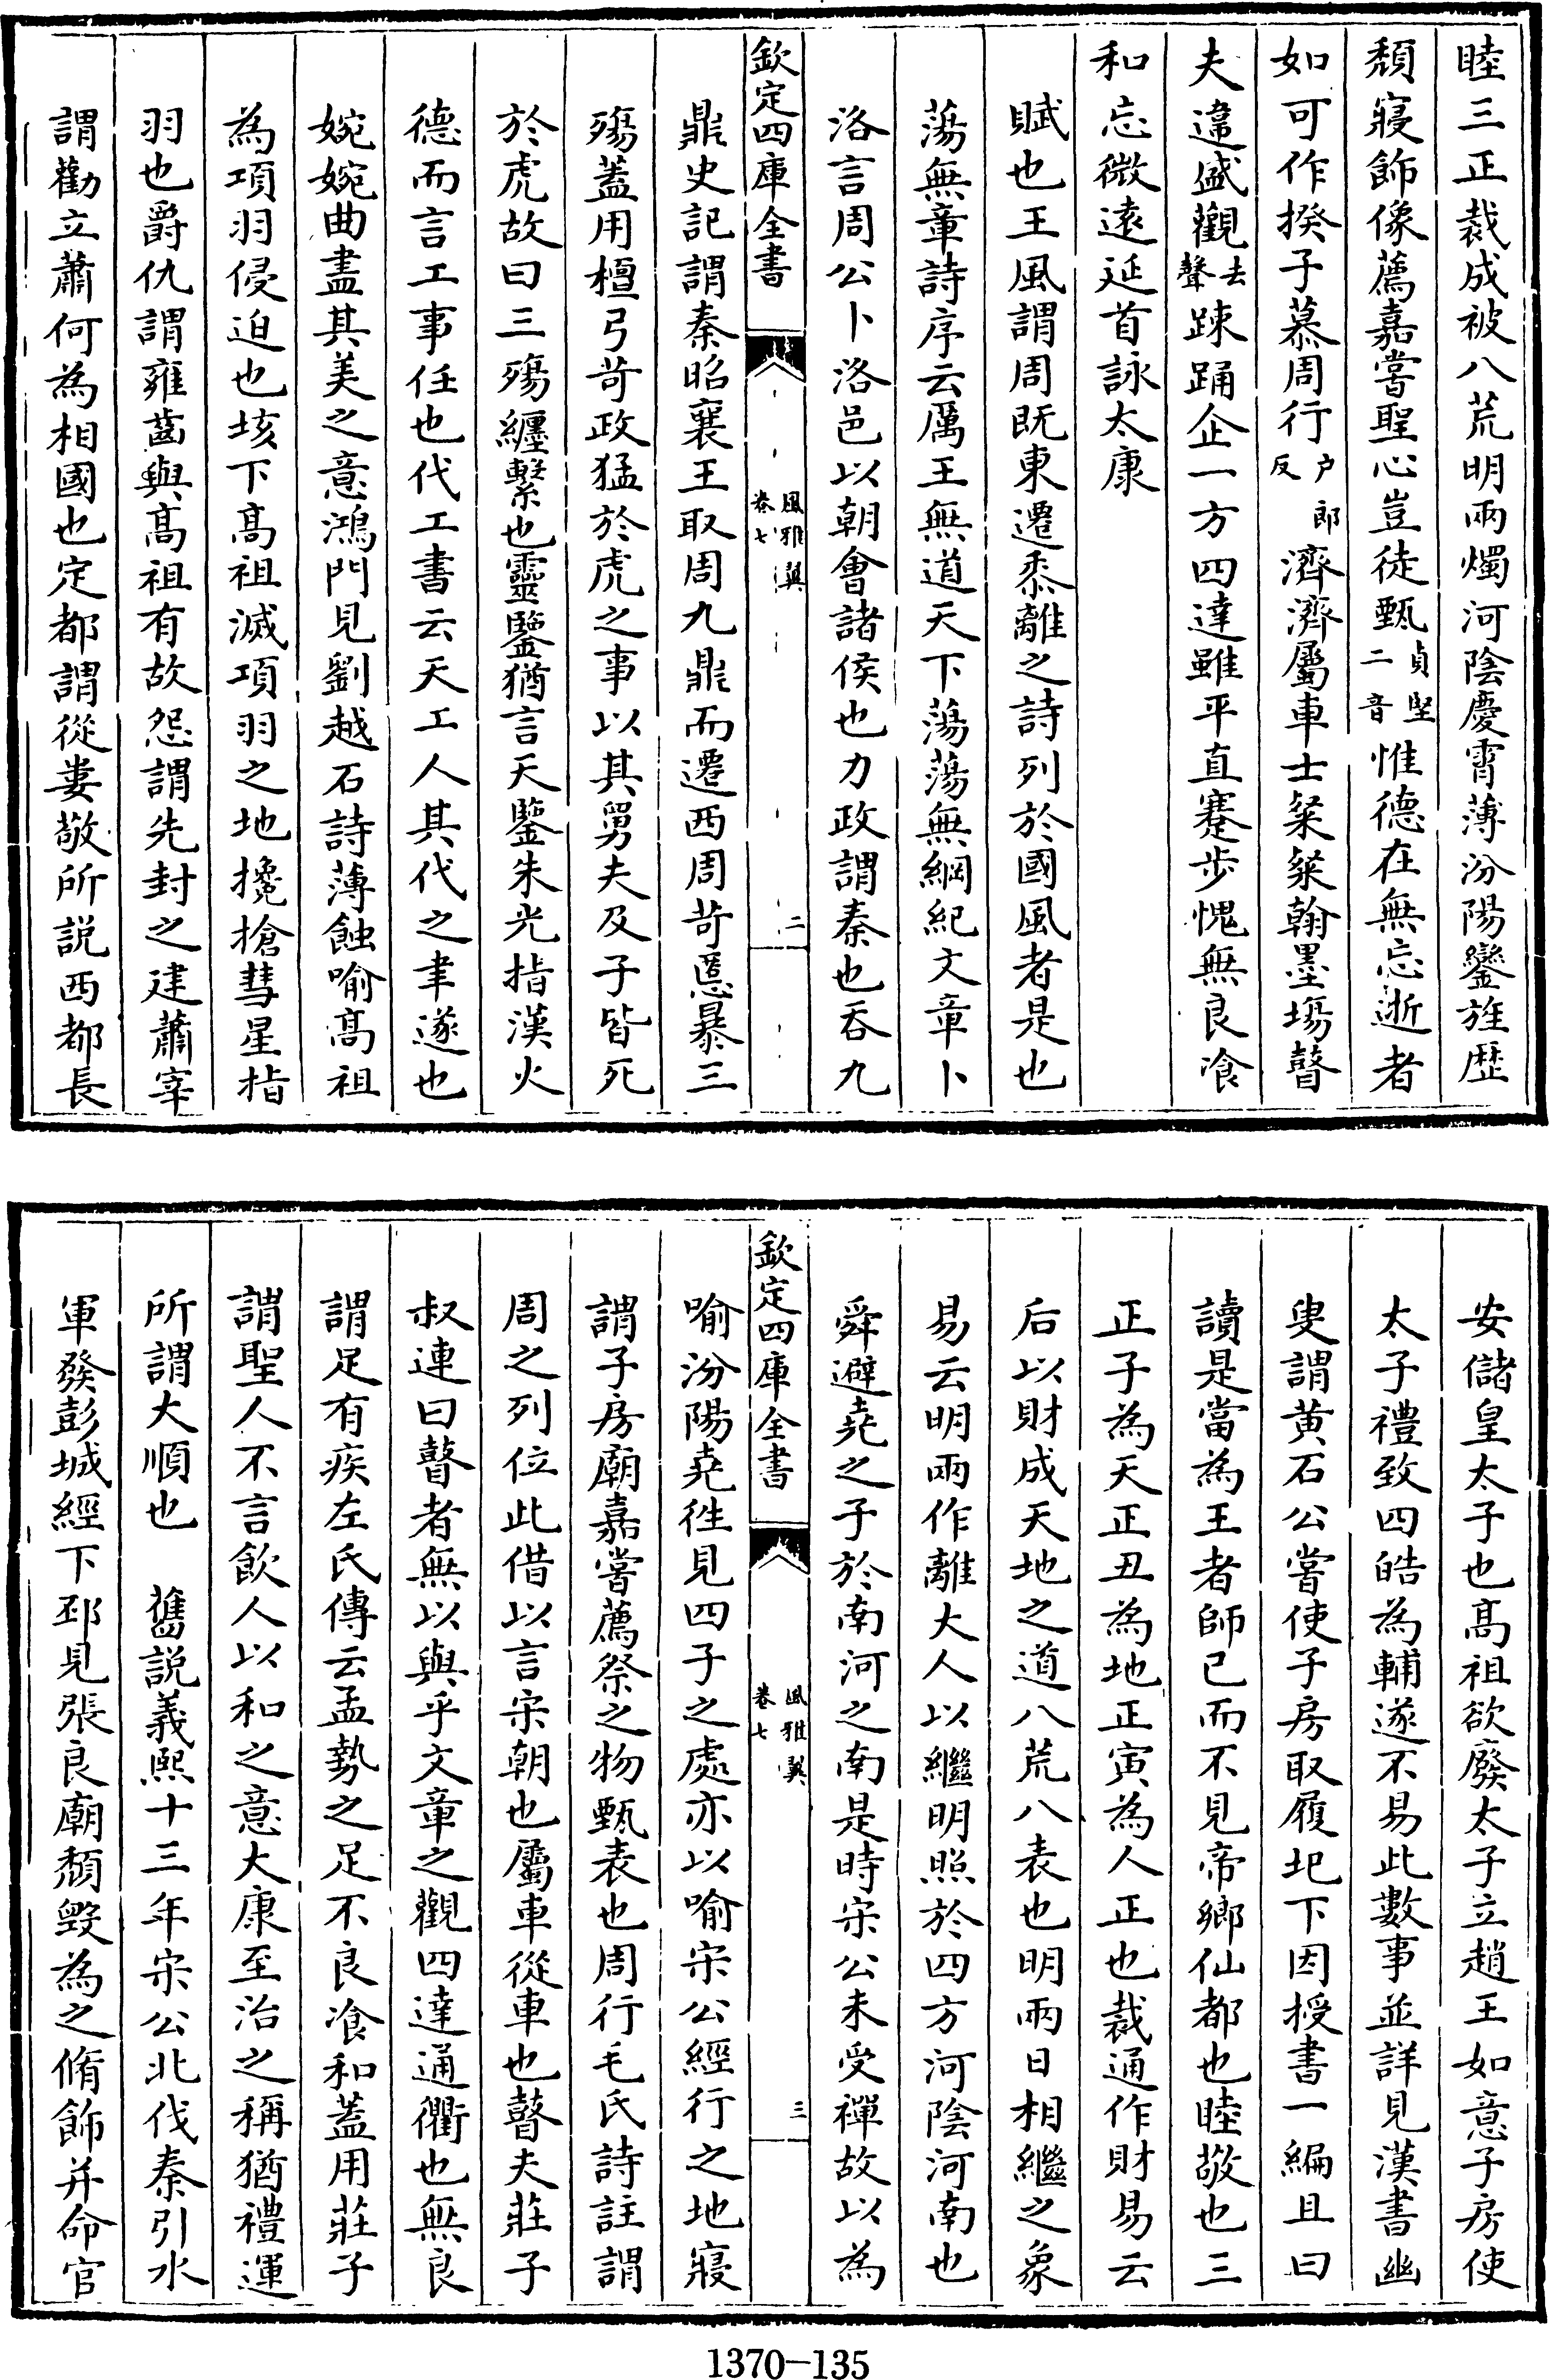 睦三正裁成被八荒明兩燭河陰慶霄薄汾陽鑾旌歴
頽寢飾像薦嘉嘗聖心豈徒甄貞堅二音惟德在無忘逝者
如可作揆子慕周行戸郎反濟濟屬車士粲粲翰墨塲瞽
夫違盛觀去聲竦踊企一方四達雖平直蹇歩愧無良飡
和忘微逺延首詠太康
賦也王風謂周既東遷黍離之詩列於國風者是也
蕩無章詩序云厲王無道天下蕩蕩無綱紀文章卜
洛言周公卜洛邑以朝會諸侯也力政謂秦也吞九
欽定四庫全書
風雅翼
卷七
二
鼎史記謂秦昭襄王取周九鼎而遷西周苛慝暴三
殤蓋用檀弓苛政猛於虎之事以其舅夫及子皆死
於虎故曰三殤纏繫也靈鑒猶言天鑒朱光指漢火
德而言工事任也代工書云天工人其代之聿遂也
婉婉曲盡其美之意鴻門見劉越石詩薄蝕喻髙祖
為項羽侵迫也垓下髙祖滅項羽之地攙搶彗星指
羽也爵仇謂雍齒與髙祖有故怨謂先封之建蕭宰
謂勸立蕭何為相國也定都謂從婁敬所説西都長
安儲皇太子也髙祖欲廢太子立趙王如意子房使
太子禮致四皓為輔遂不易此數事並詳見漢書幽
叟謂黄石公嘗使子房取履圯下因授書一編且曰
讀是當為王者師已而不見帝鄉仙都也睦敬也三
正子為天正丑為地正寅為人正也裁通作財易云
后以財成天地之道八荒八表也明兩日相繼之象
易云明兩作離大人以繼明照於四方河隂河南也
舜避堯之子於南河之南是時宋公未受禪故以為
欽定四庫全書
風雅翼
卷七
三
喻汾陽堯徃見四子之處亦以喻宋公經行之地寢
謂子房廟嘉嘗薦祭之物甄表也周行毛氏詩註謂
周之列位此借以言宋朝也屬車從車也瞽夫莊子
叔連曰瞽者無以與乎文章之觀四達通衢也無良
謂足有疾左氏傳云孟縶之足不良飡和蓋用莊子
謂聖人不言飲人以和之意大康至治之稱猶禮運
所謂大順也　舊説義熙十三年宋公北伐秦引水
軍發彭城經下邳見張良廟頽毀為之脩飾并命官
1370-135